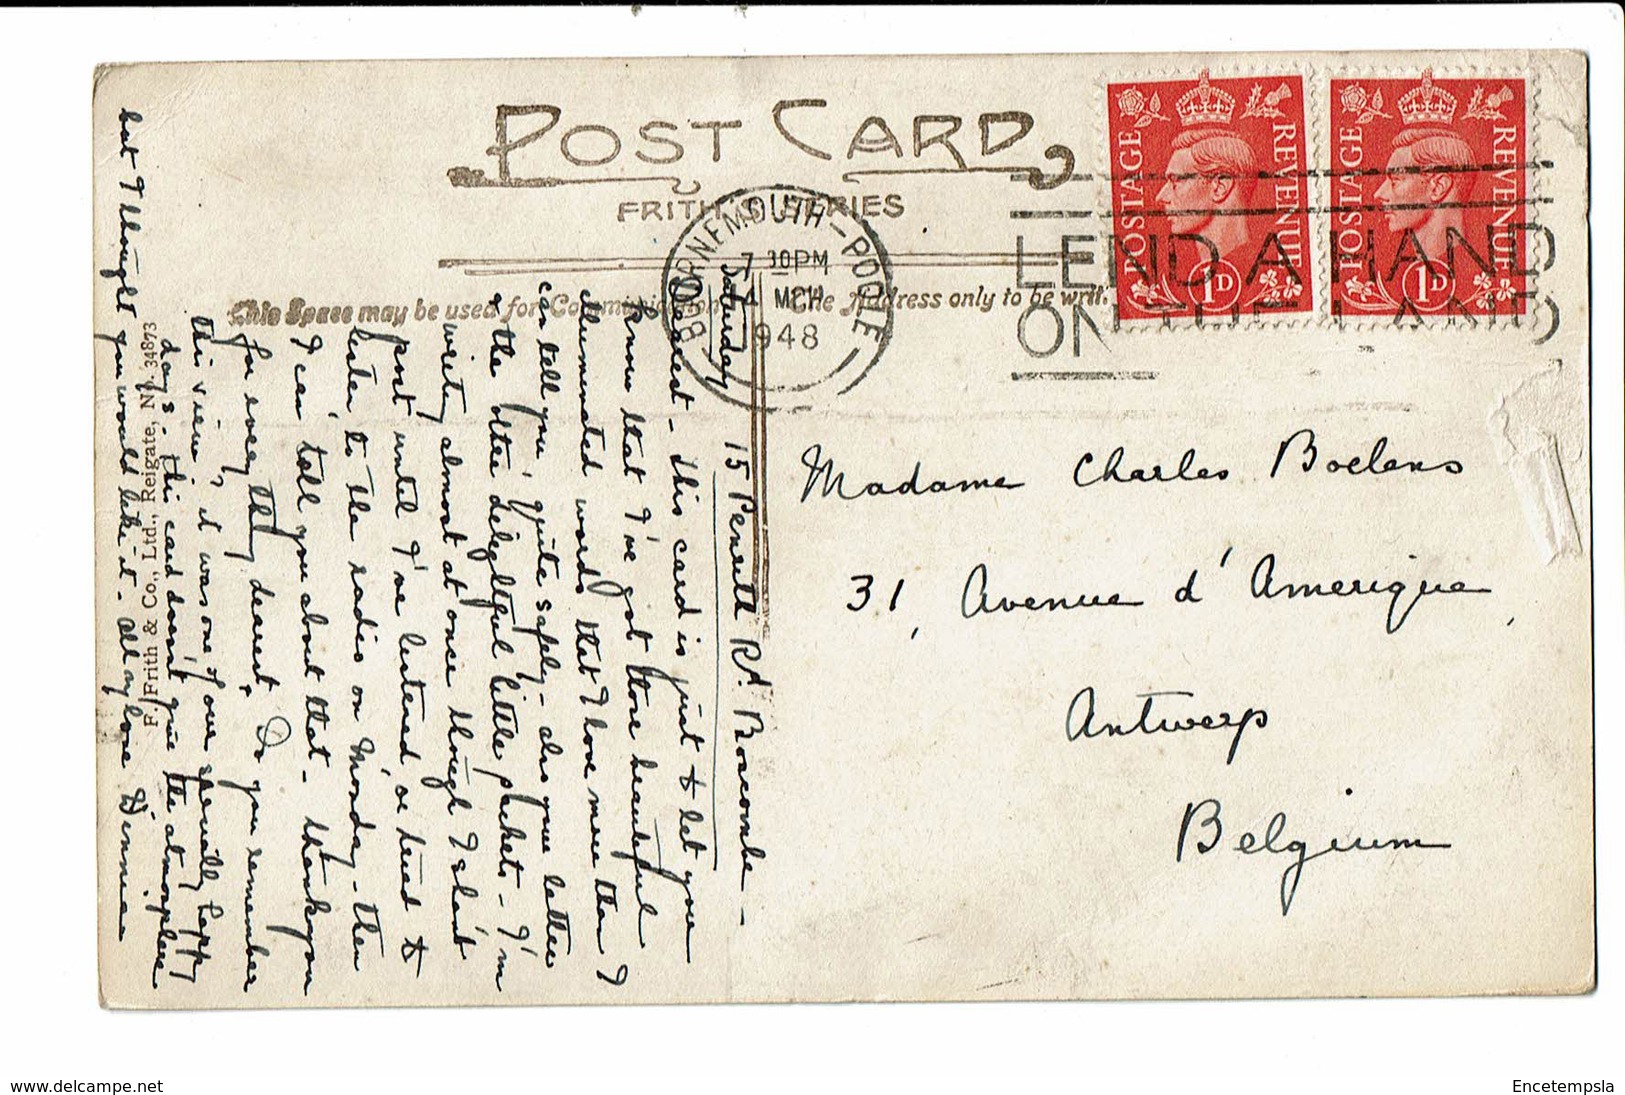 POST CARD
FRITH'S SERIES
This Space may be used for Communication
The Address only to be writ
BOURNEMOUTH - POOLE
7 30PM
MCH
1948
LEND A HAND
ON THE LAND
POSTAGE REVENUE 1D
POSTAGE REVENUE 1D
15 Penrith Rd. Boscombe -
Saturday
Dearest - This card is just to let you
know that I've got those beautiful
illuminated words that I love more than I
can tell you, quite safely - also your letter
& the other delightful little packets - I'm
writing almost at once though I shan't
post until I've listened or tried to
listen to the radio on Monday - then
I can tell you about that - thankyou
for every thing dearest. Do you remember
this view, it was one of our specially happy
days - this card doesn't give the atmosphere
but I thought you would like it - All my love
F. Frith & Co., Ltd., Reigate, No. 34873
Madame Charles Boelens
31, Avenue d'Amerique,
Antwerp
Belgium
www.delcampe.net
Encetempsla